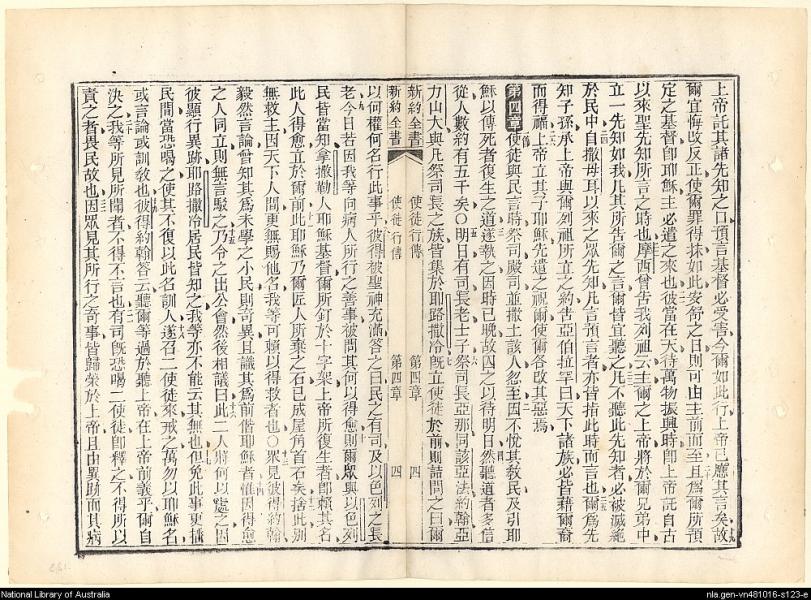 上帝託其諸先知之口預言基督必受害今爾如此行上帝已應其言矣故
爾宜悔改反正使爾罪得抹如此安舒之日則可由主前而至且爲爾所預
定之基督卽耶穌主必遣之來也彼當在天待萬物振興時卽上帝託自古
以來聖先知所言之時也摩西曾告我列祖云主爾之上帝將於爾兄弟中
立一先知如我凡其所告爾之言爾皆宜聽之凡不聽此先知者必被滅絕
於民中自撒母耳以來之眾先知凡言預言者亦皆指此時而言也爾爲先
知子孫承上帝與爾列祖所立之約告亞伯拉罕曰天下諸族必皆藉爾裔
而得福上帝立其子耶穌先遣之祝爾使爾各改其惡焉
第四章使徒與民言時祭司殿司並撒土該人忽至因不悅其教民及引耶
穌以傳死者復生之道遂執之因時已晚故囚之以待明日然聽道者多信
從人數約有五千矣〇明日有司長老士子祭司長亞那同該亞法約翰亞
力山大與凡祭司長之族皆集於耶路撒冷旣立使徒於前則詰問之曰爾
新約全書 使徒行傳 第四章 四
新約全書 使徒行傳 第四章 四
以何權何名行此事乎彼得被聖神充滿答之曰民之有司及以色列之長
老今日若因我等向病人所行之善事被問其何以得愈則爾眾與以色列
民皆當知拿撒勒人耶穌基督爾所釘於十字架上帝所復生者卽賴其名
此人得愈立於爾前此耶穌乃爾匠人所棄之石已成屋角首石矣捨此別
無救主因天下人間更無賜他名我等可賴以得救者也〇眾見彼得約翰
毅然言論曾知其爲未學之小民則奇異且識其爲前偕耶穌者惟因得愈
之人同立則無言駁之乃令之出公會然後相議曰此二人將何以處之因
彼顯行異跡耶路撒冷居民皆知之我等亦不能云其無也但免此事更播
民間當恐喝之使其不復以此名訓人遂召二使徒來戒之萬勿以耶穌名
或言論或訓敎也彼得約翰答云聽爾等過於聽上帝在上帝前義乎爾自
決之我等所見所聞者不得不言也有司旣恐喝二使徒卽釋之不得所以
責之者畏民故也因眾見其所行之奇事皆歸榮於上帝且由異跡而其病
National Library of Australia
nla.gen-vn481016-s123-e